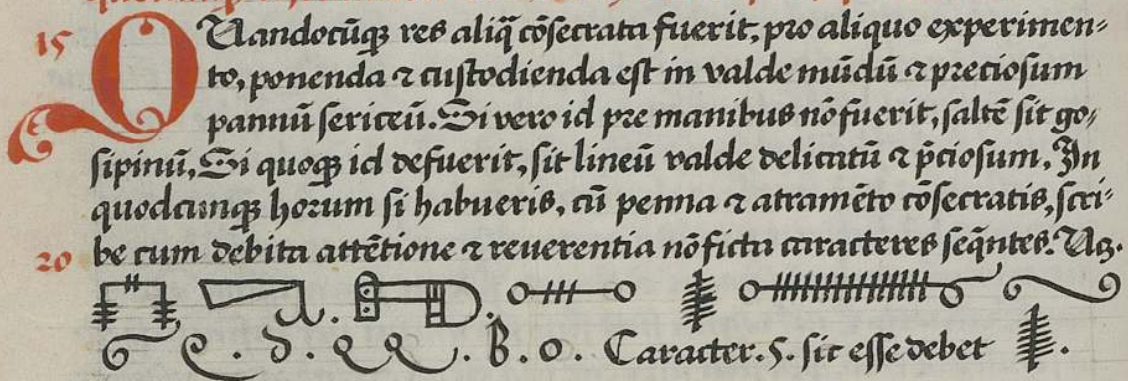 15 QUandocūqꝫ res aliq̄ cōsecrata fuerit, pro aliquo experimen=
to, ponenda ⁊ custodienda est in valde mūdū ⁊ preciosum
pannū sericeū. Si vero id pre manibus nō fuerit, saltē sit go,,
sipinū, Si quoqꝫ id defuerit, sit lineū valde delicatū ⁊ p̄ciosum. In
quodcunqꝫ horum si habueris, cū penna ⁊ atramēto cōsecratis, scri=
20 be cum debita attētione ⁊ reuerentia nō ficta caracteres seq̄ntes. Uꝫ.
B. o. Caracter. 5. sic esse debet